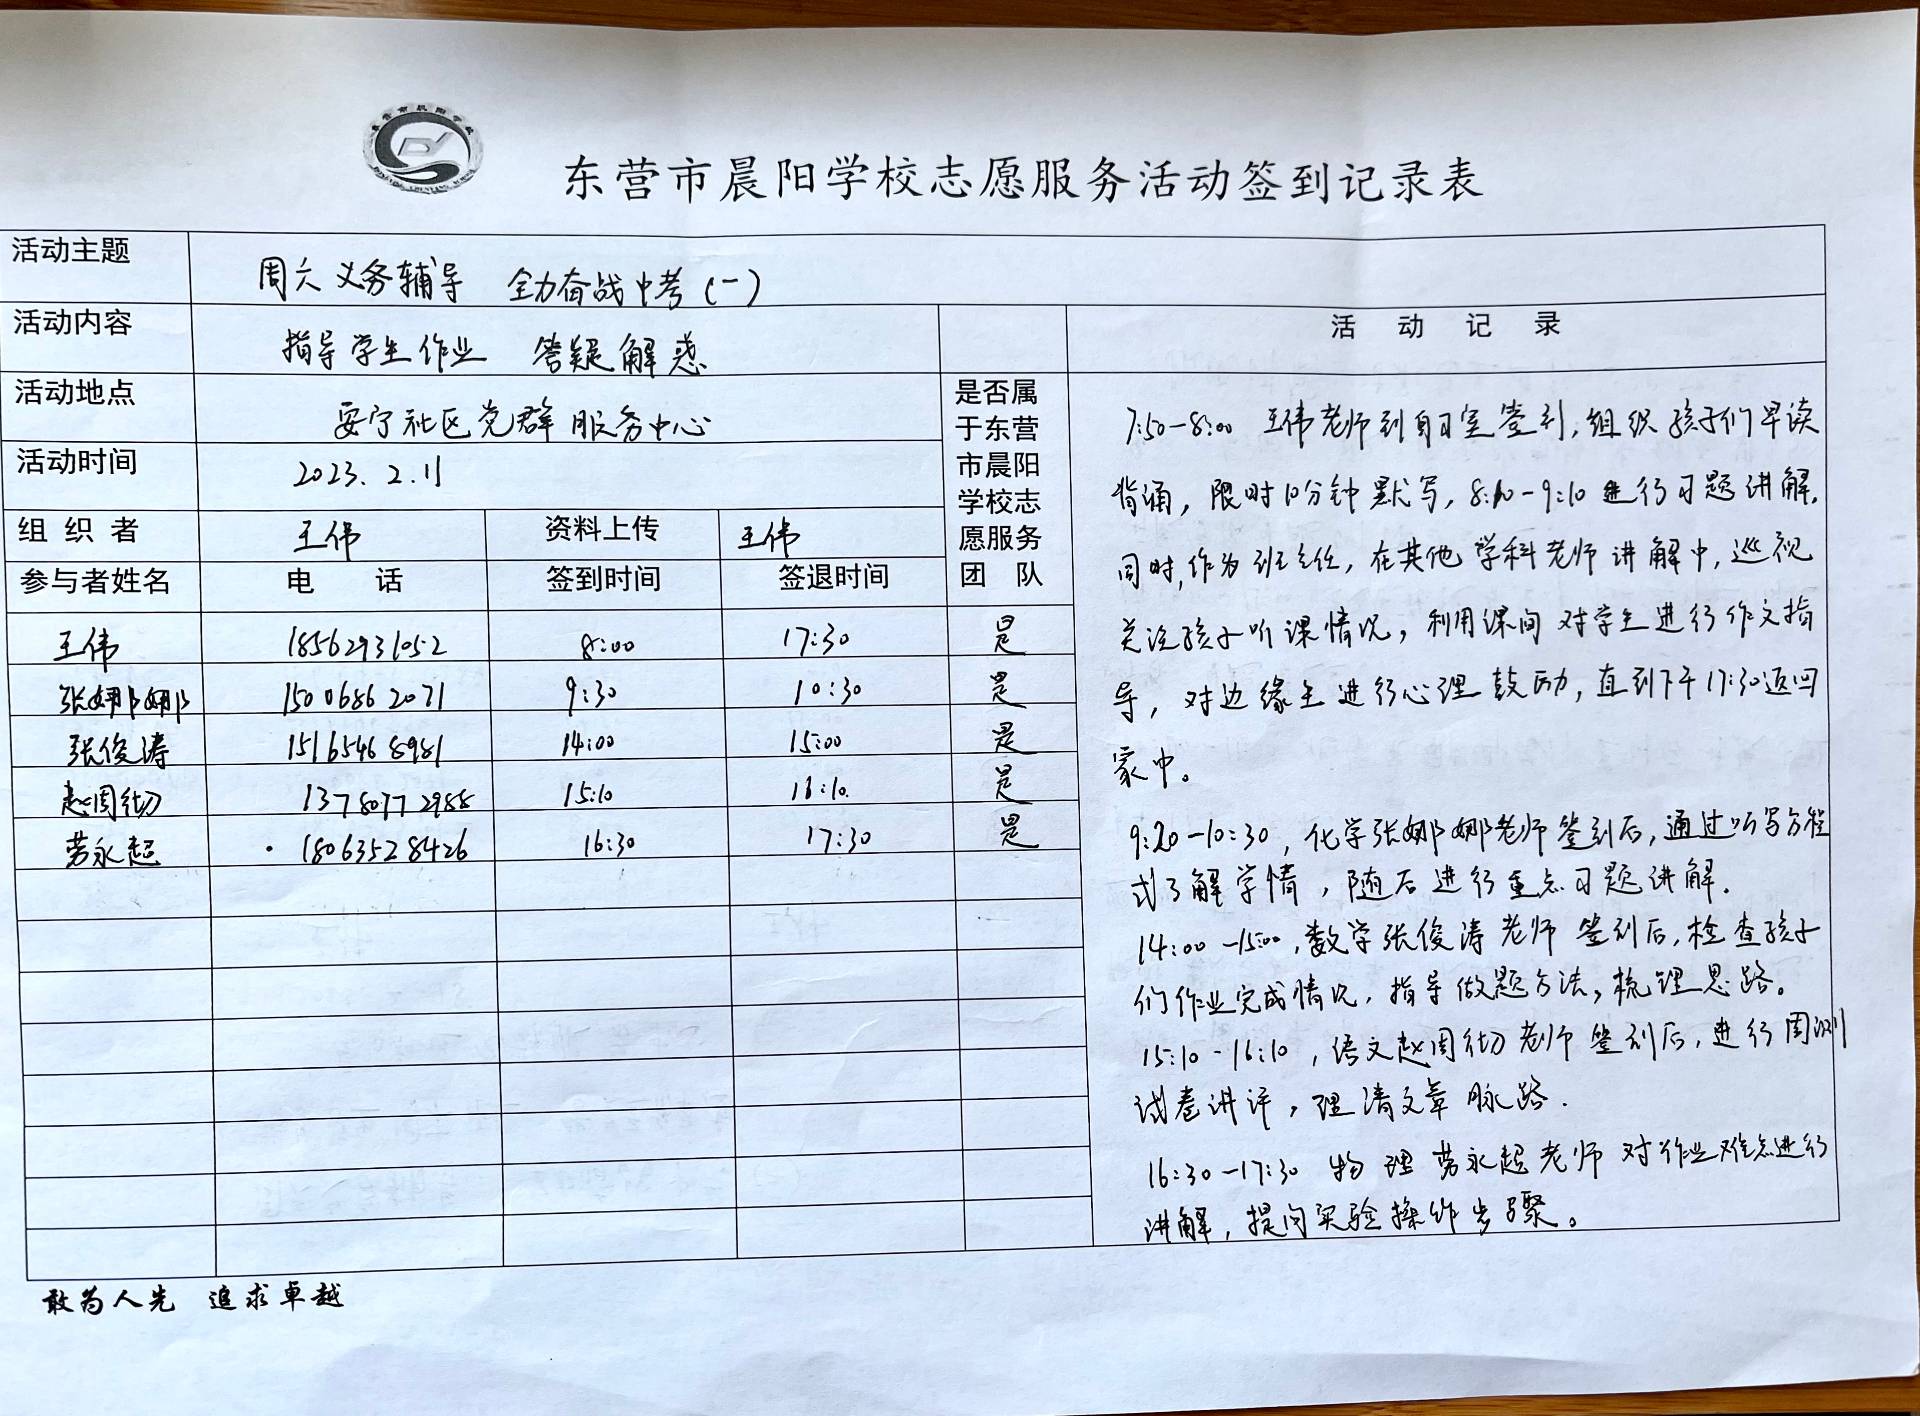 东营市晨阳学校志愿服务活动签到记录表
活动主题 周六义务辅导 全力奋战中考(一)
活动内容 指导学生作业 答疑解惑
活动记录
活动地点 安宁社区党群服务中心
活动时间 2023.2.11
是否属
于东营
市晨阳
学校志
愿服务
团队
组织者 王伟 资料上传 王伟
参与者姓名 电话 签到时间 签退时间
王伟 18562931052 8:00 17:30 是
张娜娜 15006862071 9:30 10:30 是
张俊涛 15165468981 14:00 15:00 是
赵周彻 13780772988 15:10 16:10. 是
劳永超 18063528426 16:30 17:30 是
7:50-8:00 王伟老师到自习室签到,组织孩子们早读
背诵,限时10分钟默写,8:10-9:10进行习题讲解.
同时,作为班主任,在其他学科老师讲解中,巡视
关注孩子听课情况,利用课间对学生进行作文指
导,对边缘生进行心理鼓励,直到下午17:30返回
家中。
9:20-10:30,化学张娜娜老师签到后,通过听写方程
式了解学情,随后进行重点习题讲解.
14:00-15:00,数学张俊涛老师签到后,检查孩子
们作业完成情况,指导做题方法,梳理思路。
15:10-16:10,语文赵周彻老师签到后,进行周测
试卷讲评,理清文章脉路.
16:30-17:30 物理劳永超老师对作业难点进行
讲解,提问实验操作步骤。
敢为人先 追求卓越